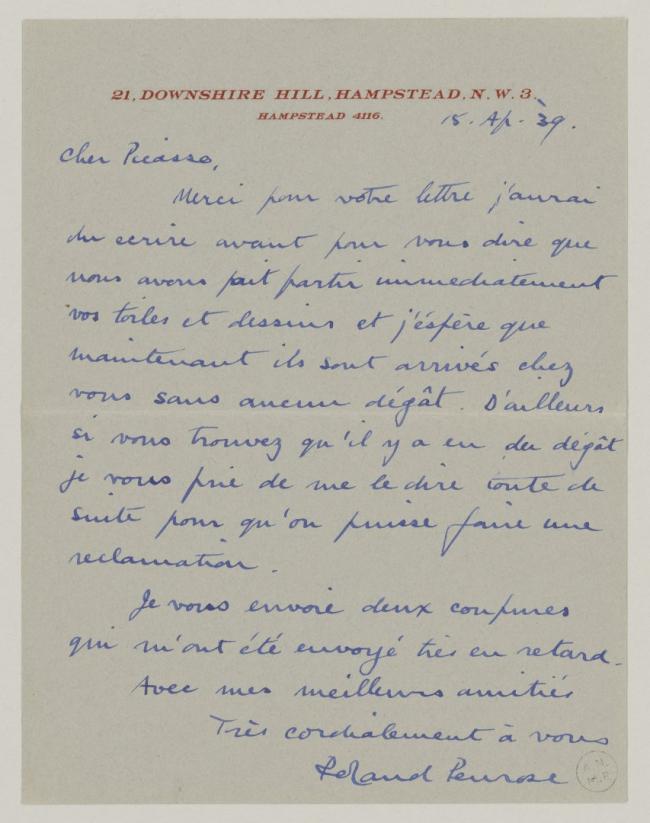 21, DOWNSHIRE HILL, HAMPSTEAD, N.W.3.
HAMPSTEAD 4116.
15. Ap. 39.
Cher Picasso,
Merci pour votre lettre j'aurai
du ecrire avant pour vous dire que
nous avons fait partir immediatement
vos toiles et dessins et j'éspère que
maintenant ils sont arrivés chez
vous sans aucun dégât. D'ailleurs
si vous trouvez qu'il y a eu du dégât
je vous prie de me le dire toute de
suite pour qu'on puisse faire une
reclamation.
Je vous envoie deux coupures
qui m'ont été envoyé très en retard.
Avec mes meilleures amitiés
Très cordialement à vous
Roland Penrose